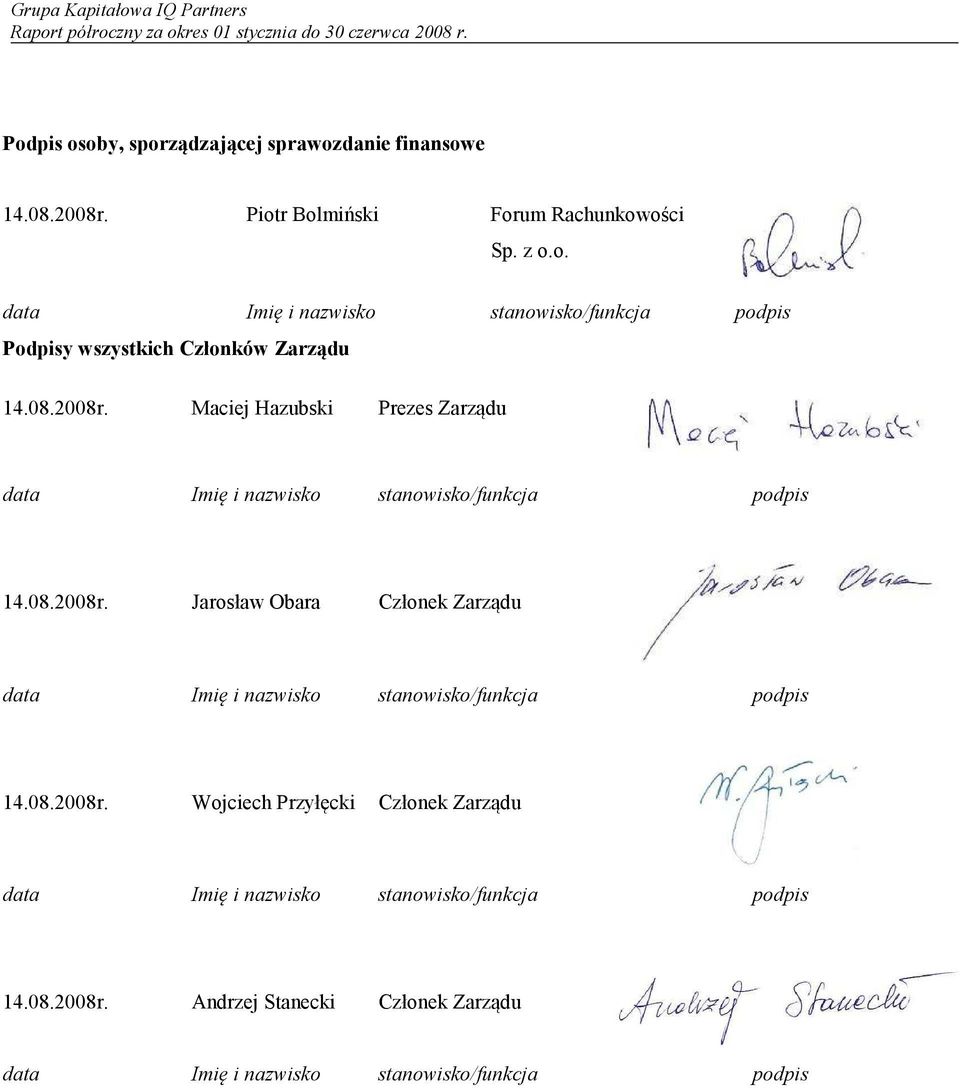 Grupa Kapitałowa IQ Partners
Raport półroczny za okres 01 stycznia do 30 czerwca 2008 r.
Podpis osoby, sporządzającej sprawozdanie finansowe
14.08.2008r. Piotr Bolmiński Forum Rachunkowości
Sp. z o.o.
data Imię i nazwisko stanowisko/funkcja podpis
Podpisy wszystkich Członków Zarządu
14.08.2008r. Maciej Hazubski Prezes Zarządu Maciej Hazubski
data Imię i nazwisko stanowisko/funkcja podpis
14.08.2008r. Jarosław Obara Członek Zarządu Jarosław Obara
data Imię i nazwisko stanowisko/funkcja podpis
14.08.2008r. Wojciech Przyłęcki Członek Zarządu W.
data Imię i nazwisko stanowisko/funkcja podpis
14.08.2008r. Andrzej Stanecki Członek Zarządu Andrzej Stanecki
data Imię i nazwisko stanowisko/funkcja podpis